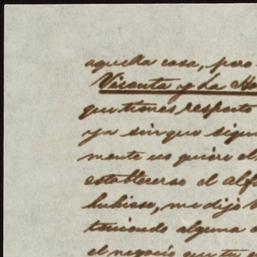 aquella casa, pero
Vicenta y La Ha
que tienes respecto
ya sin que sigu
mente no quiere el
establecerse el alf
hubiese, me dijo
teniendo alguna
el negocio que tu